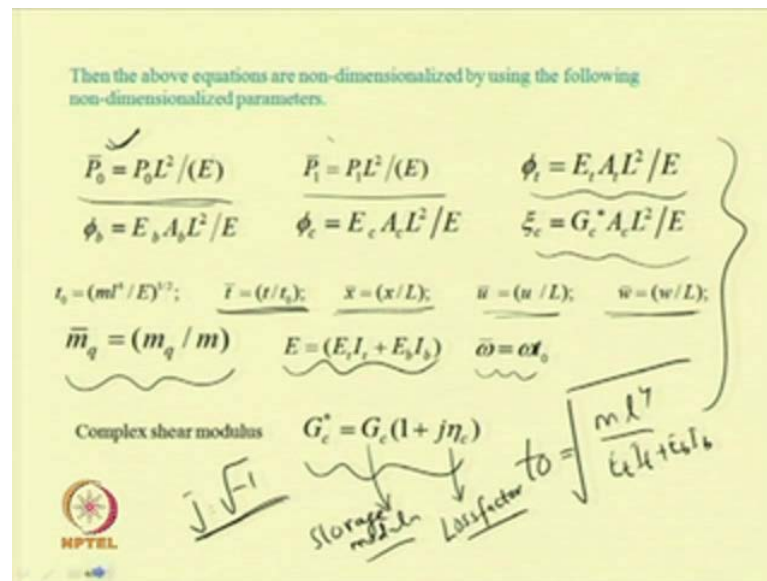 Then the above equations are non-dimensionalized by using the following
non-dimensionalized parameters.
P̄₀ = P₀L²/(E) P̄₁ = P₁L²/(E) ϕₜ = EₜAₜL²/E
ϕ_b = E_b A_b L²/E ϕ_c = E_c A_c L²/E ξ_c = G_c* A_c L²/E
t₀ = (ml⁴/E)^{1/2}; t̄ = (t/t₀); x̄ = (x/L); ū = (u /L); w̄ = (w/L);
m̄_q = (m_q / m) E = (EₜIₜ + E_bI_b) ω̄ = ωt₀
Complex shear modulus G_c* = G_c(1 + jη_c)
j = √-1 storage modulus Loss factor t₀ = √(ml⁴ / (EₜIₜ + E_bI_b))
NPTEL